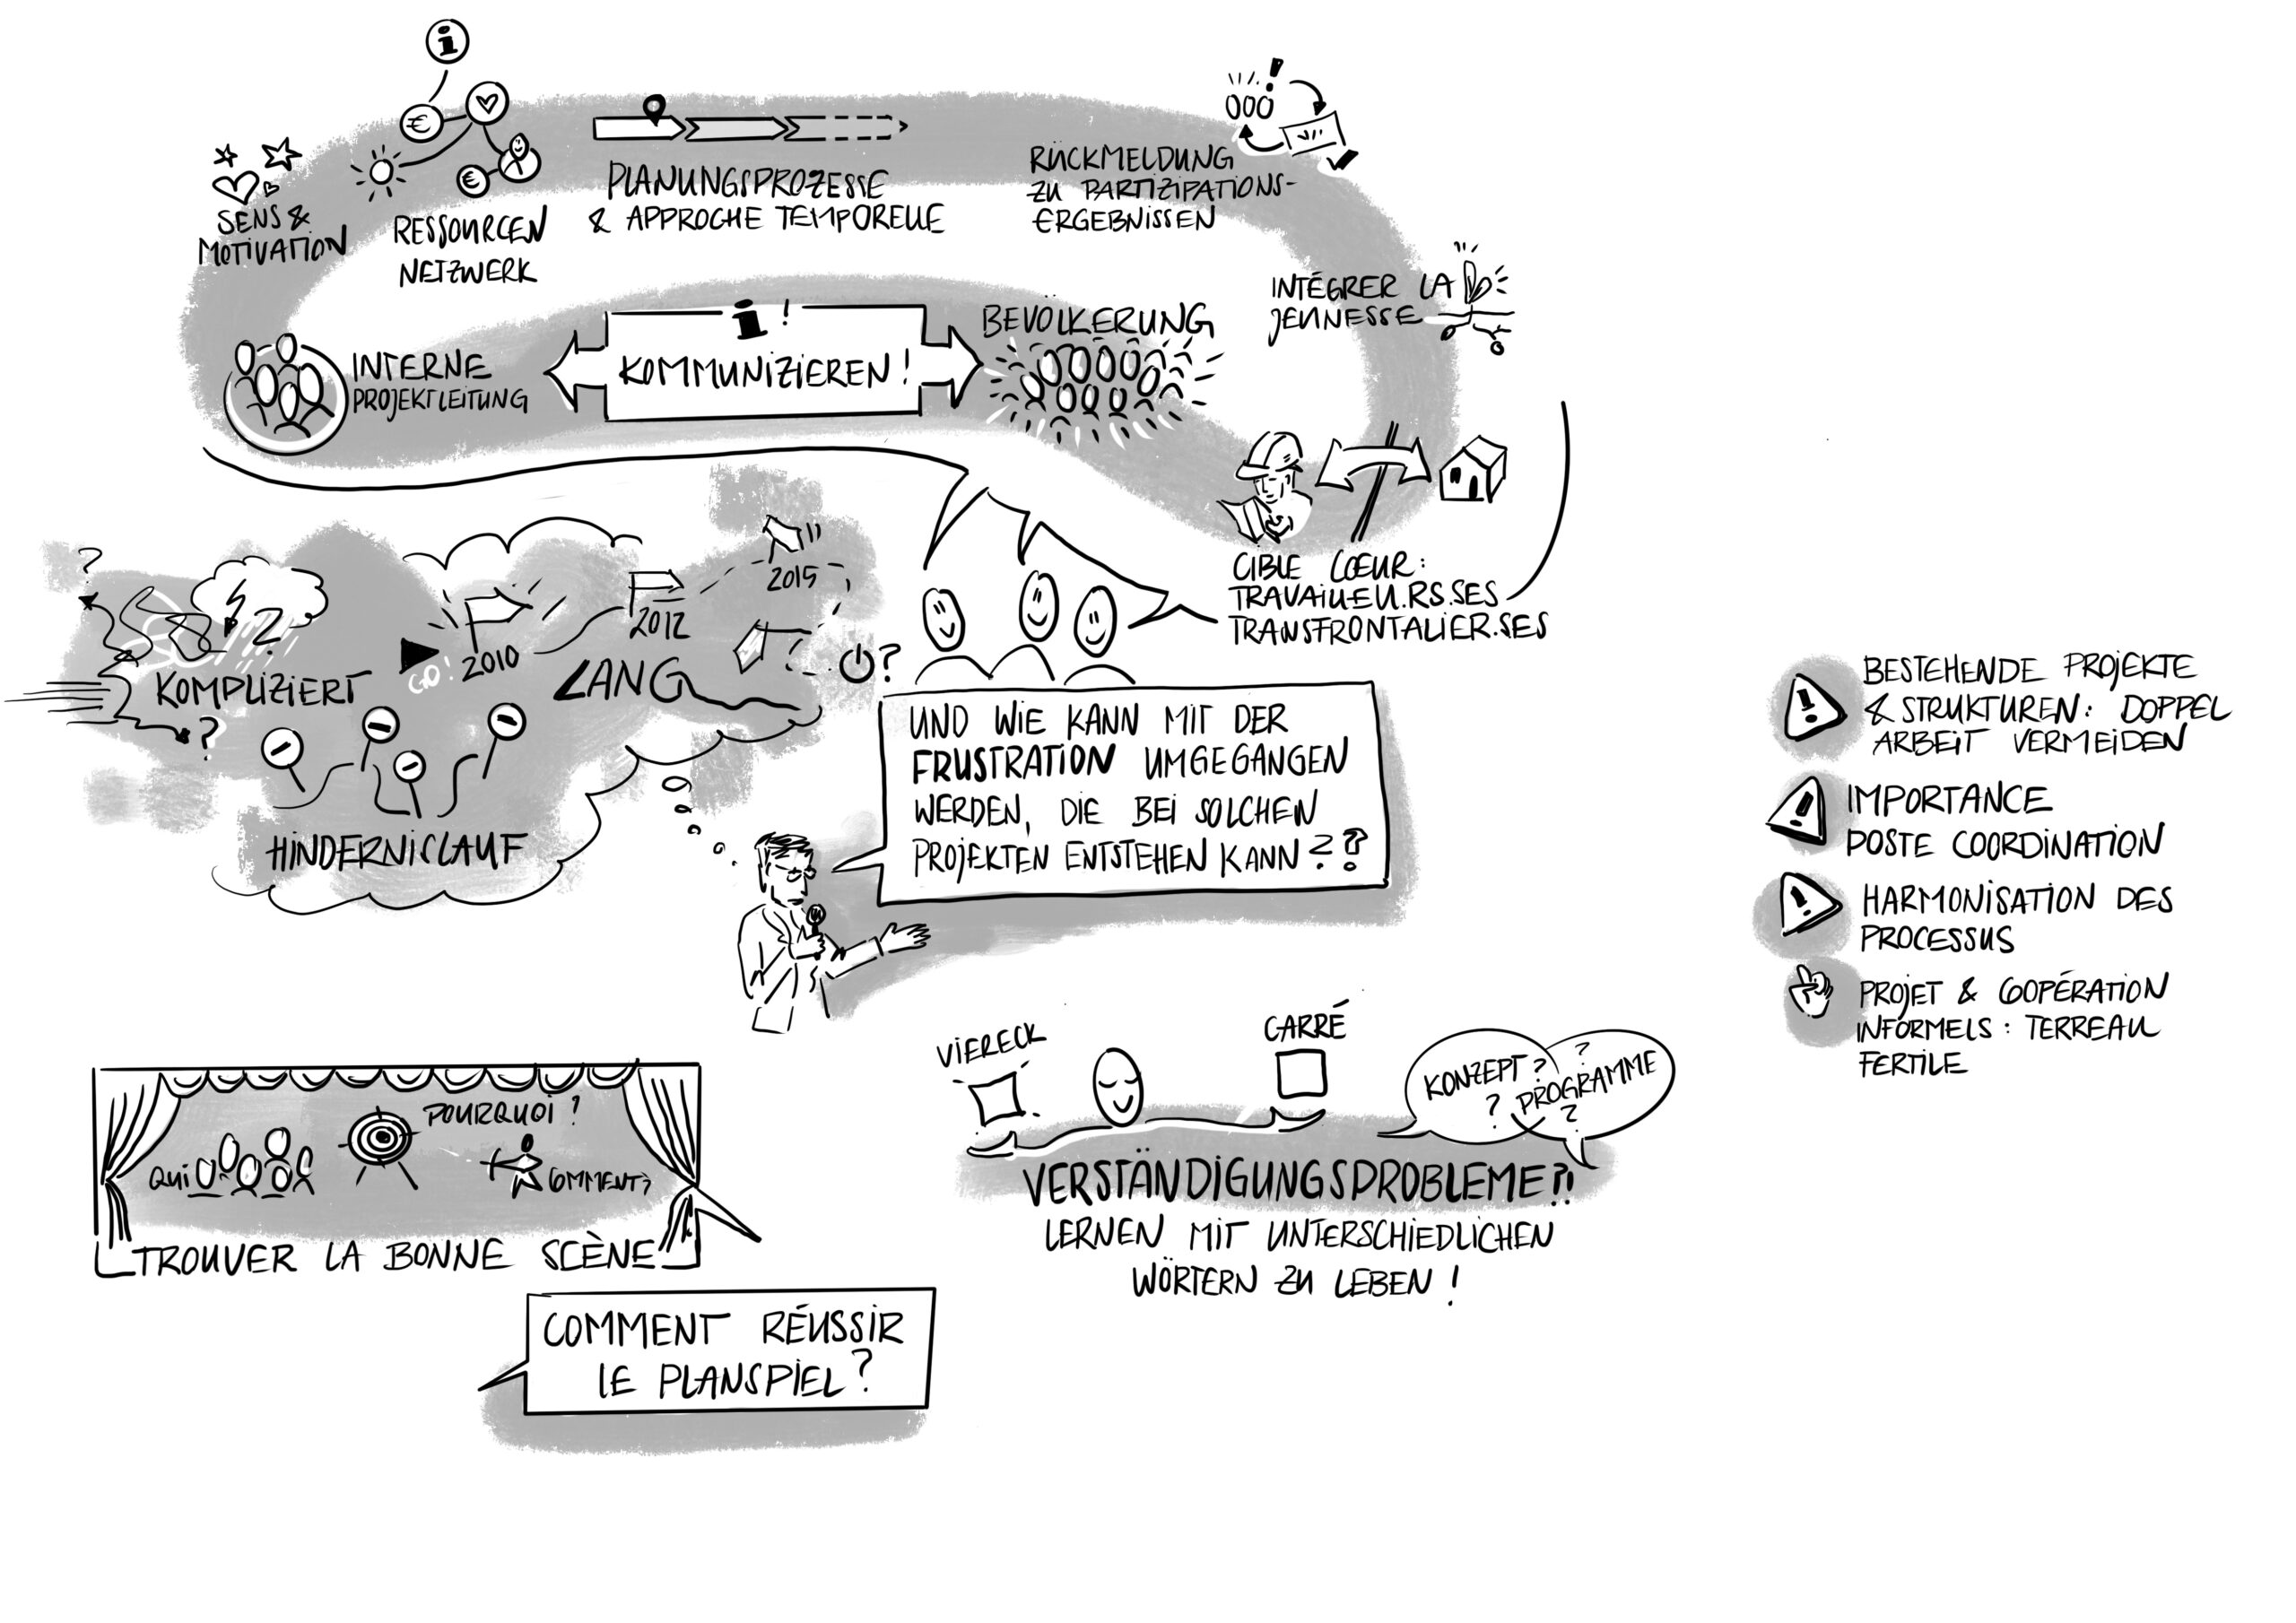 SENS &
MOTIVATION
RESSOURCEN
NETZWERK
PLANUNGSPROZESSE
& APPROCHE TEMPORELLE
RÜCKMELDUNG
ZU PARTIZIPATIONS-
ERGEBNISSEN
INTÉGRER LA
JEUNESSE
INTERNE
PROJEKTLEITUNG
i!
KOMMUNIZIEREN!
BEVÖLKERUNG
CIBLE CŒUR:
TRAVAILLEU.RS.SES
TRANSFRONTALIER.SES
KOMPLIZIERT
GO!
2010
2012
2015
LANG
HINDERNISLAUF
UND WIE KANN MIT DER
FRUSTRATION UMGEGANGEN
WERDEN, DIE BEI SOLCHEN
PROJEKTEN ENTSTEHEN KANN??
BESTEHENDE PROJEKTE
& STRUKTUREN: DOPPEL
ARBEIT VERMEIDEN
IMPORTANCE
POSTE COORDINATION
HARMONISATION DES
PROCESSUS
PROJET & COOPÉRATION
INFORMELS: TERREAU
FERTILE
POURQUOI?
QUI
COMMENT?
TROUVER LA BONNE SCÈNE
COMMENT RÉUSSIR
LE PLANSPIEL?
VIERECK
CARRÉ
KONZEPT?
?
?
PROGRAMME
?
VERSTÄNDIGUNGSPROBLEME?!
LERNEN MIT UNTERSCHIEDLICHEN
WÖRTERN ZU LEBEN!